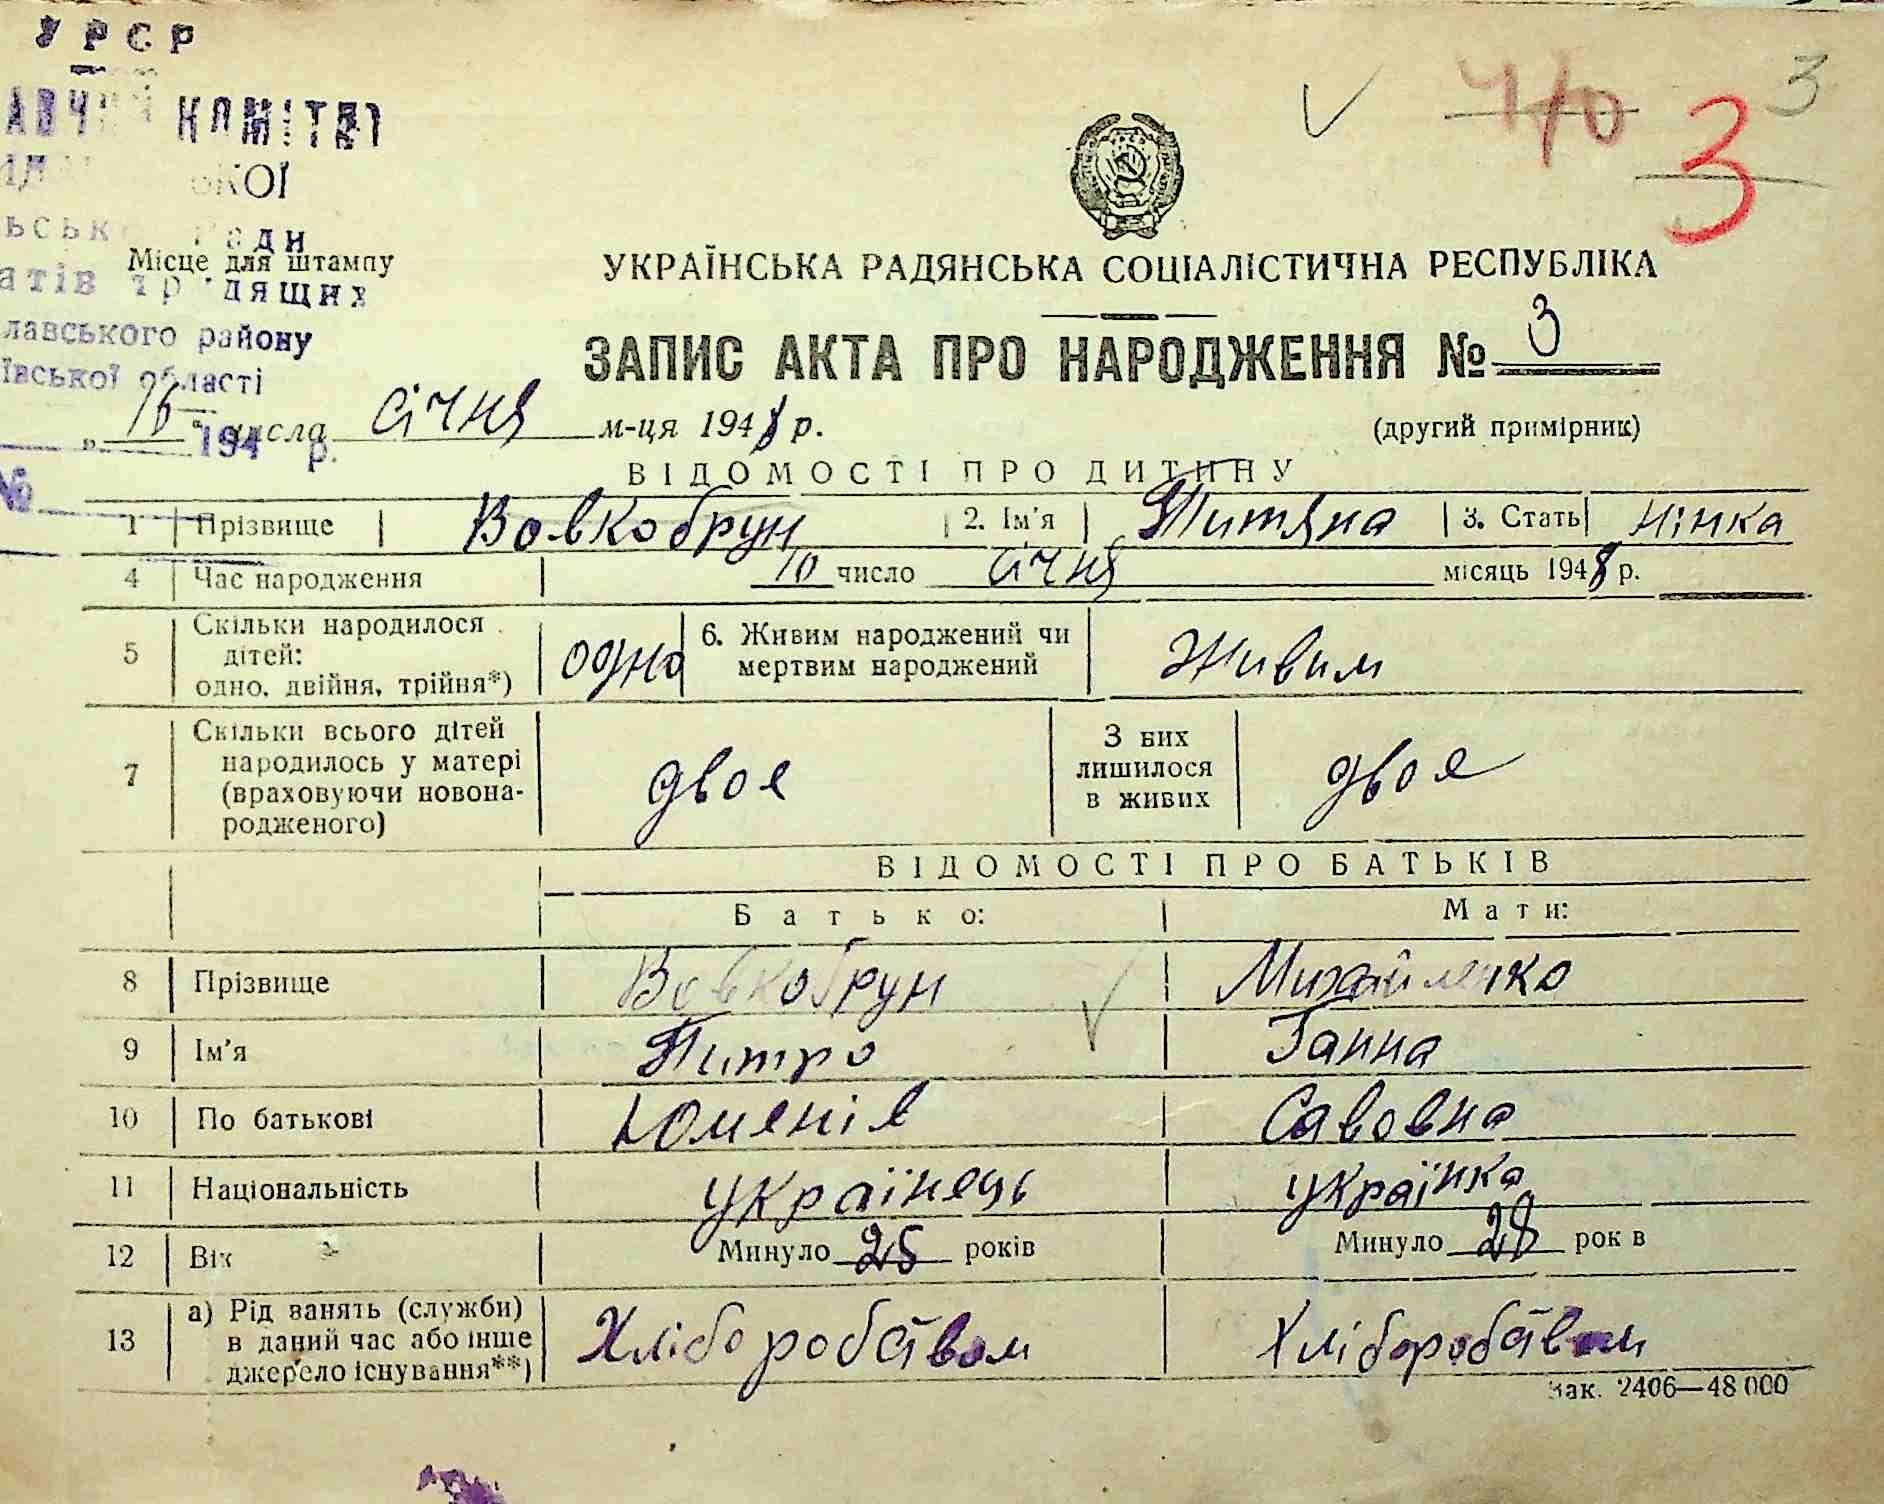 УРСР
КОМІТЕТ
ради
трудящих
лавського району
ївської області
194 р.
№
Місце для штампу
3
3
УКРАЇНСЬКА РАДЯНСЬКА СОЦІАЛІСТИЧНА РЕСПУБЛІКА
ЗАПИС АКТА ПРО НАРОДЖЕННЯ № 3
„ 16 " числа січня м-ця 1948 р.
(другий примірник)
ВІДОМОСТІ ПРО ДИТИНУ
1 Прізвище Вовкобрун 2. Ім'я Титяна 3. Стать жінка
4 Час народження 10 число січня місяць 1948 р.
5 Скільки народилося дітей: одно, двійня, трійня*) одно 6. Живим народжений чи мертвим народжений Живим
7 Скільки всього дітей народилось у матері (враховуючи новонародженого) двоя З них лишилося в живих двоя
ВІДОМОСТІ ПРО БАТЬКІВ
Батько: Мати:
8 Прізвище Вовкобрун Михайленко
9 Ім'я Питро Ганна
10 По батькові Юменів Савовна
11 Національність українець українка
12 Вік Минуло 25 років Минуло 28 рок в
13 а) Рід занять (служби) в даний час або інше джерело існування**) Хліборобством Хліборобством
Зак. 2406—48 000